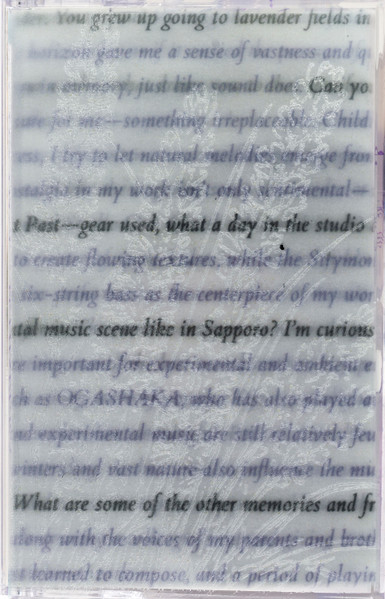 You grew up going to lavender fields in
horizon gave me a sense of vastness and q
in memory, just like sound does. Can yo
for me—something irreplaceable. Child
ess, I try to let natural melodies emerge from
nostalgia in my work isn't only sentimental—
t Past—gear used, what a day in the studio
to create flowing textures, while the
six-string bass as the centerpiece of my wor
tal music scene like in Sapporo? I'm curious
re important for experimental and ambient e
ch as OGASHAKA, who has also played a
nd experimental music are still relatively few
winters and vast nature also influence the mu
What are some of the other memories and fr
along with the voices of my parents and broth
st learned to compose, and a period of playin